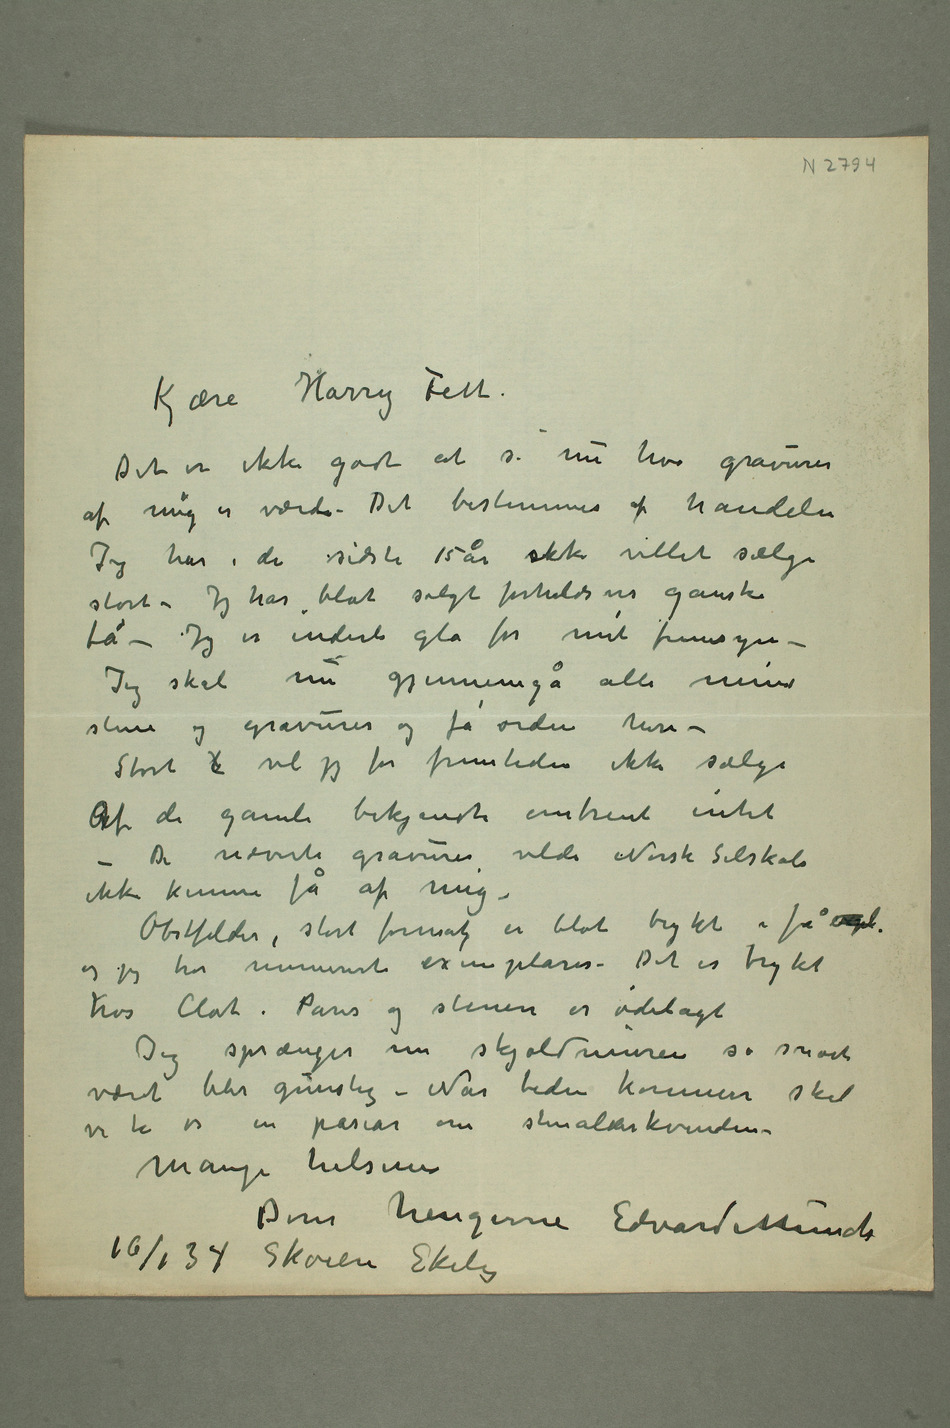 N 2794
Kjære Harry Fett.
Det er ikke godt at si nu hva gravurer
af mig er værdt – Det bestemmes af handelen
Jeg har i de sidste 15 år ikke villet sælge
stort – Jeg har blot solgt forholdsvis ganske
få – Jeg er inderlig gla for mit fremsyn –
Jeg skal nu gjennemgå alle mine
stene og gravurer og få orden heri –
Stort vil jeg for fremtiden ikke sælge
Af de gamle bekjendte omtrent intet
– De nævnte gravurer vilde Norsk Selskab
ikke kunne få af mig –
Obstfelder, stort format er blot trykt i få
og jeg tror numererte exemplarer – Det er trykt
hos Clot i Paris og stenen er ødelagt
Jeg sprænger nu skjoldmuren så snart
været blir gunstig – Når tiden kommer skal
vi ta os en pasiar om
Mange hilsener
Deres hengivne Edvard Munch
16/1 34 Skøien Ekely